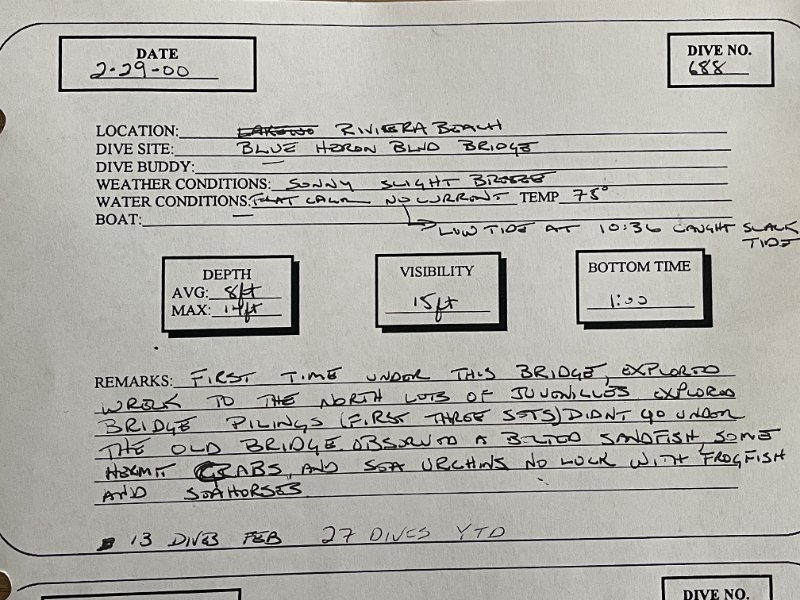 DATE
2-29-00
DIVE NO.
688
LOCATION: RIVIERA BEACH
DIVE SITE: BLUE HERON BLVD BRIDGE
DIVE BUDDY: —
WEATHER CONDITIONS: SUNNY SLIGHT BREEZE
WATER CONDITIONS: FLAT CALM NO CURRENT TEMP 75°
BOAT: —
LOW TIDE AT 10:36 CAUGHT SLACK
TIDE
DEPTH
AVG: 8ft
MAX: 14ft
VISIBILITY
15ft
BOTTOM TIME
1:00
REMARKS: FIRST TIME UNDER THIS BRIDGE, EXPLORED
WRECK TO THE NORTH LOTS OF JUVENILLES EXPLORED
BRIDGE PILINGS (FIRST THREE SETS) DIDNT GO UNDER
THE OLD BRIDGE. OBSERVED A BELTED SANDFISH, SOME
HERMIT CRABS, AND SEA URCHINS NO LUCK WITH FROGFISH
AND SEAHORSES
13 DIVES FEB 27 DIVES YTD
DIVE NO.